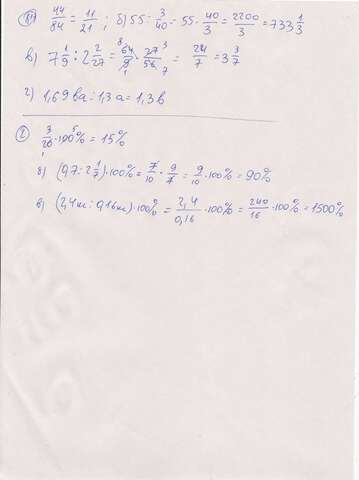 №1 44/84 = 11/21 ; б) 55 : 3/40 = 55 · 40/3 = 2200/3 = 733 1/3
в) 7 1/9 : 2 2/27 = 64/9 · 27/56 = 24/7 = 3 3/7
г) 1,69 ва : 1,3 а = 1,3 в
2 3/20 · 100% = 15%
б) (0,7 : 2 1/7) · 100% = 7/10 · 9/7 = 9/10 · 100% = 90%
в) (2,4м : 0,16м) · 100% = 2,4/0,16 · 100% = 240/16 · 100% = 1500%